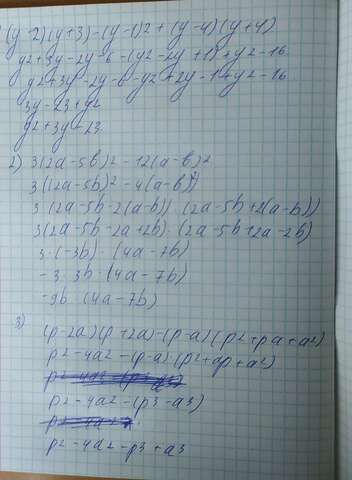 (y-2)(y+3)-(y-1)2+(y-4)(y+4)
y2+3y-2y-6-(y2-2y+1)+y2-16
y2+3y-2y-6-y2+2y-1+y2-16
3y-23+y2
y2+3y-23
2) 3(2a-5b)2-12(a-b)2
3((2a-5b)2-4(a-b)2)
3(2a-5b-2(a-b))·(2a-5b+2(a-b))
3(2a-5b-2a+2b)·(2a-5b+2a-2b)
3·(-3b)·(4a-7b)
-3·3b·(4a-7b)
-9b·(4a-7b)
3)
(p-2a)(p+2a)-(p-a)(p2+pa+a2)
p2-4a2-(p-a)·(p2+ap+a2)
p2-4a2-(p3-a3)
p2-4a2-p3+a3